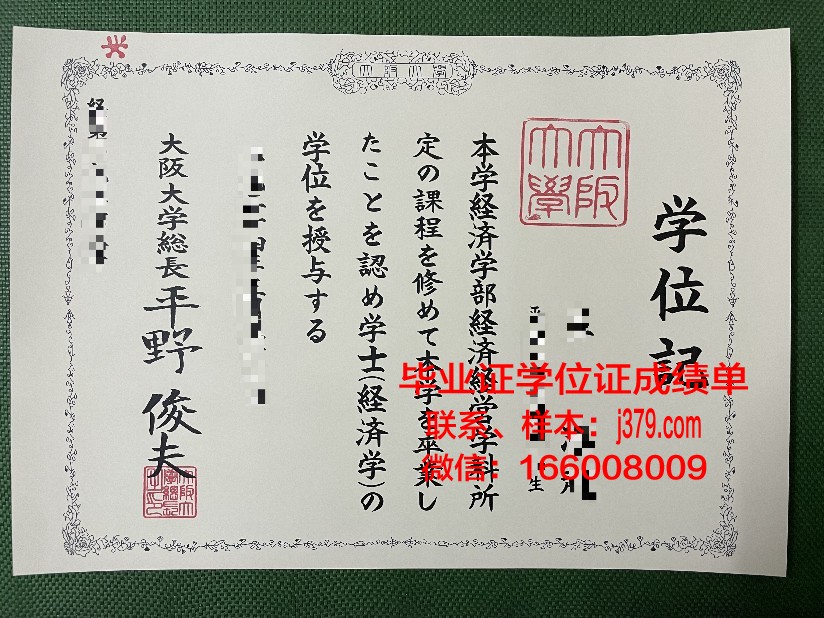 学位記
大阪
大學
生
本学経済学部経済経営学科所
定の課程を修めて本学を卒業し
たことを認め学士(経済学)の
学位を授与する
大阪大学総長 平野俊夫
毕业证学位证成绩单
联系、样本:j379.com
微信:166008009